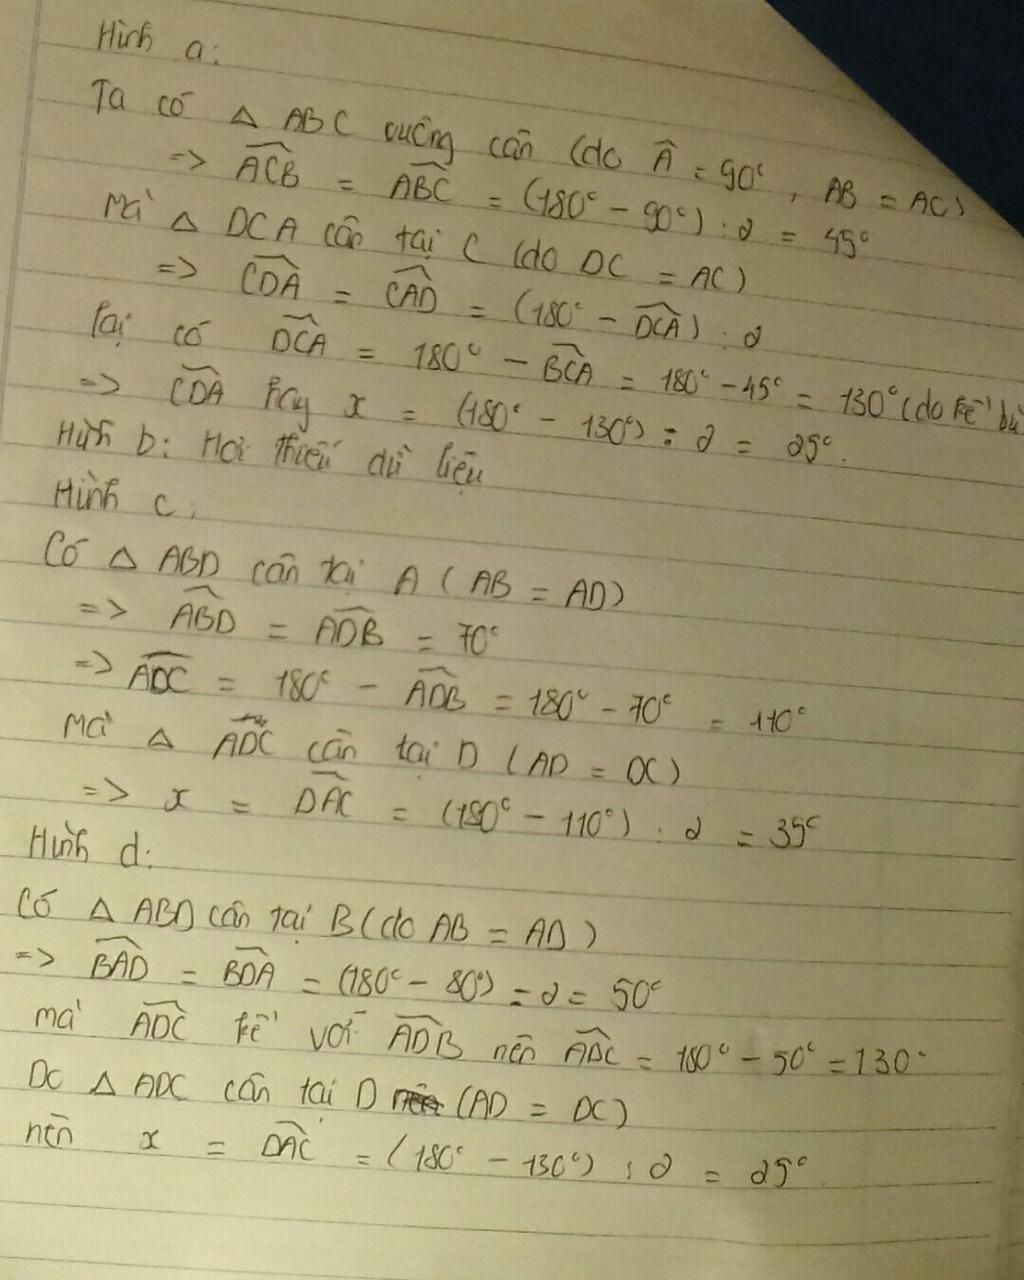 Hình a:
Ta có △ ABC vuông cân (do Â = 90°, AB = AC)
=> ACB = ABC = (180° - 90°) : 2 = 45°
Mà △ DCA cân tại C (do DC = AC)
=> CDA = CAD = (180° - DCA) : 2
Lại có DCA = 180° - BCA = 180° - 45° = 130° (do kề bù
=> CDA hay x = (180° - 130°) : 2 = 25°.
Hình b: Hơi thiếu dữ liệu
Hình c:
Có △ ABD cân tại A (AB = AD)
=> ABD = ADB = 70°
=> ADC = 180° - ADB = 180° - 70° = 110°
Mà △ ADC cân tại D (AD = DC)
=> x = DAC = (180° - 110°) : 2 = 35°
Hình d:
Có △ ABD cân tại B (do AB = AD)
=> BAD = BDA = (180° - 80°) = 2 = 50°
mà ADC kề với ADB nên ADC = 180° - 50° = 130°
Do △ ADC cân tại D (AD = DC)
nên x = DAC = (180° - 130°) : 2 = 25°.